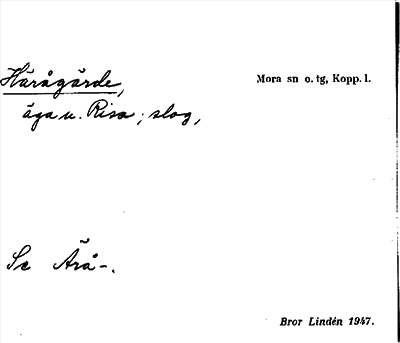 Härågärde,
Mora sn o. tg, Kopp. l.
äga u. Risa; slog,
Se Ärå-.
Bror Lindén 1947.